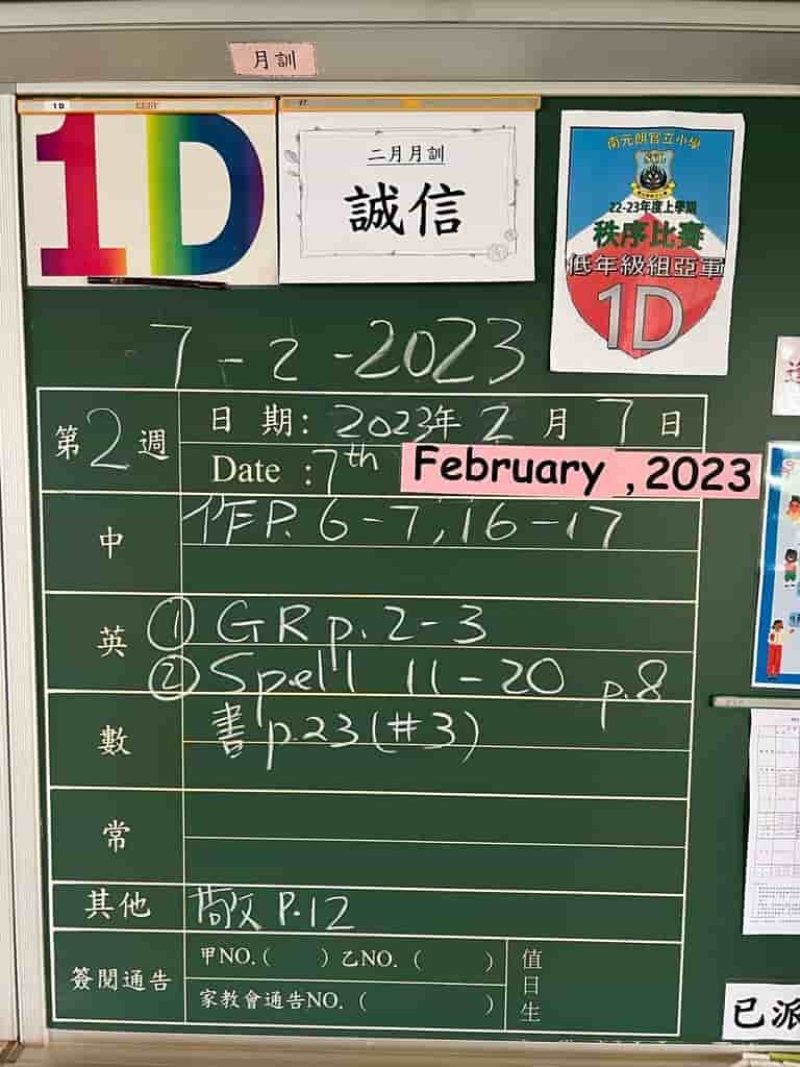 月訓
1D
1D
二月月訓
誠信
南元朗官立小學
22-23年度上學期
秩序比賽
低年級組亞軍
1D
7-2-2023
第2週
日 期: 2023年2月7日
Date :7th February ,2023
中
作P.6-7,16-17
英
① GR p.2-3
② Spell 11-20 p.8
數
書p.23(#3)
常
其他
P.12
簽閱通告
甲NO.( ) 乙NO.( )
家教會通告NO.( )
值日生
已派